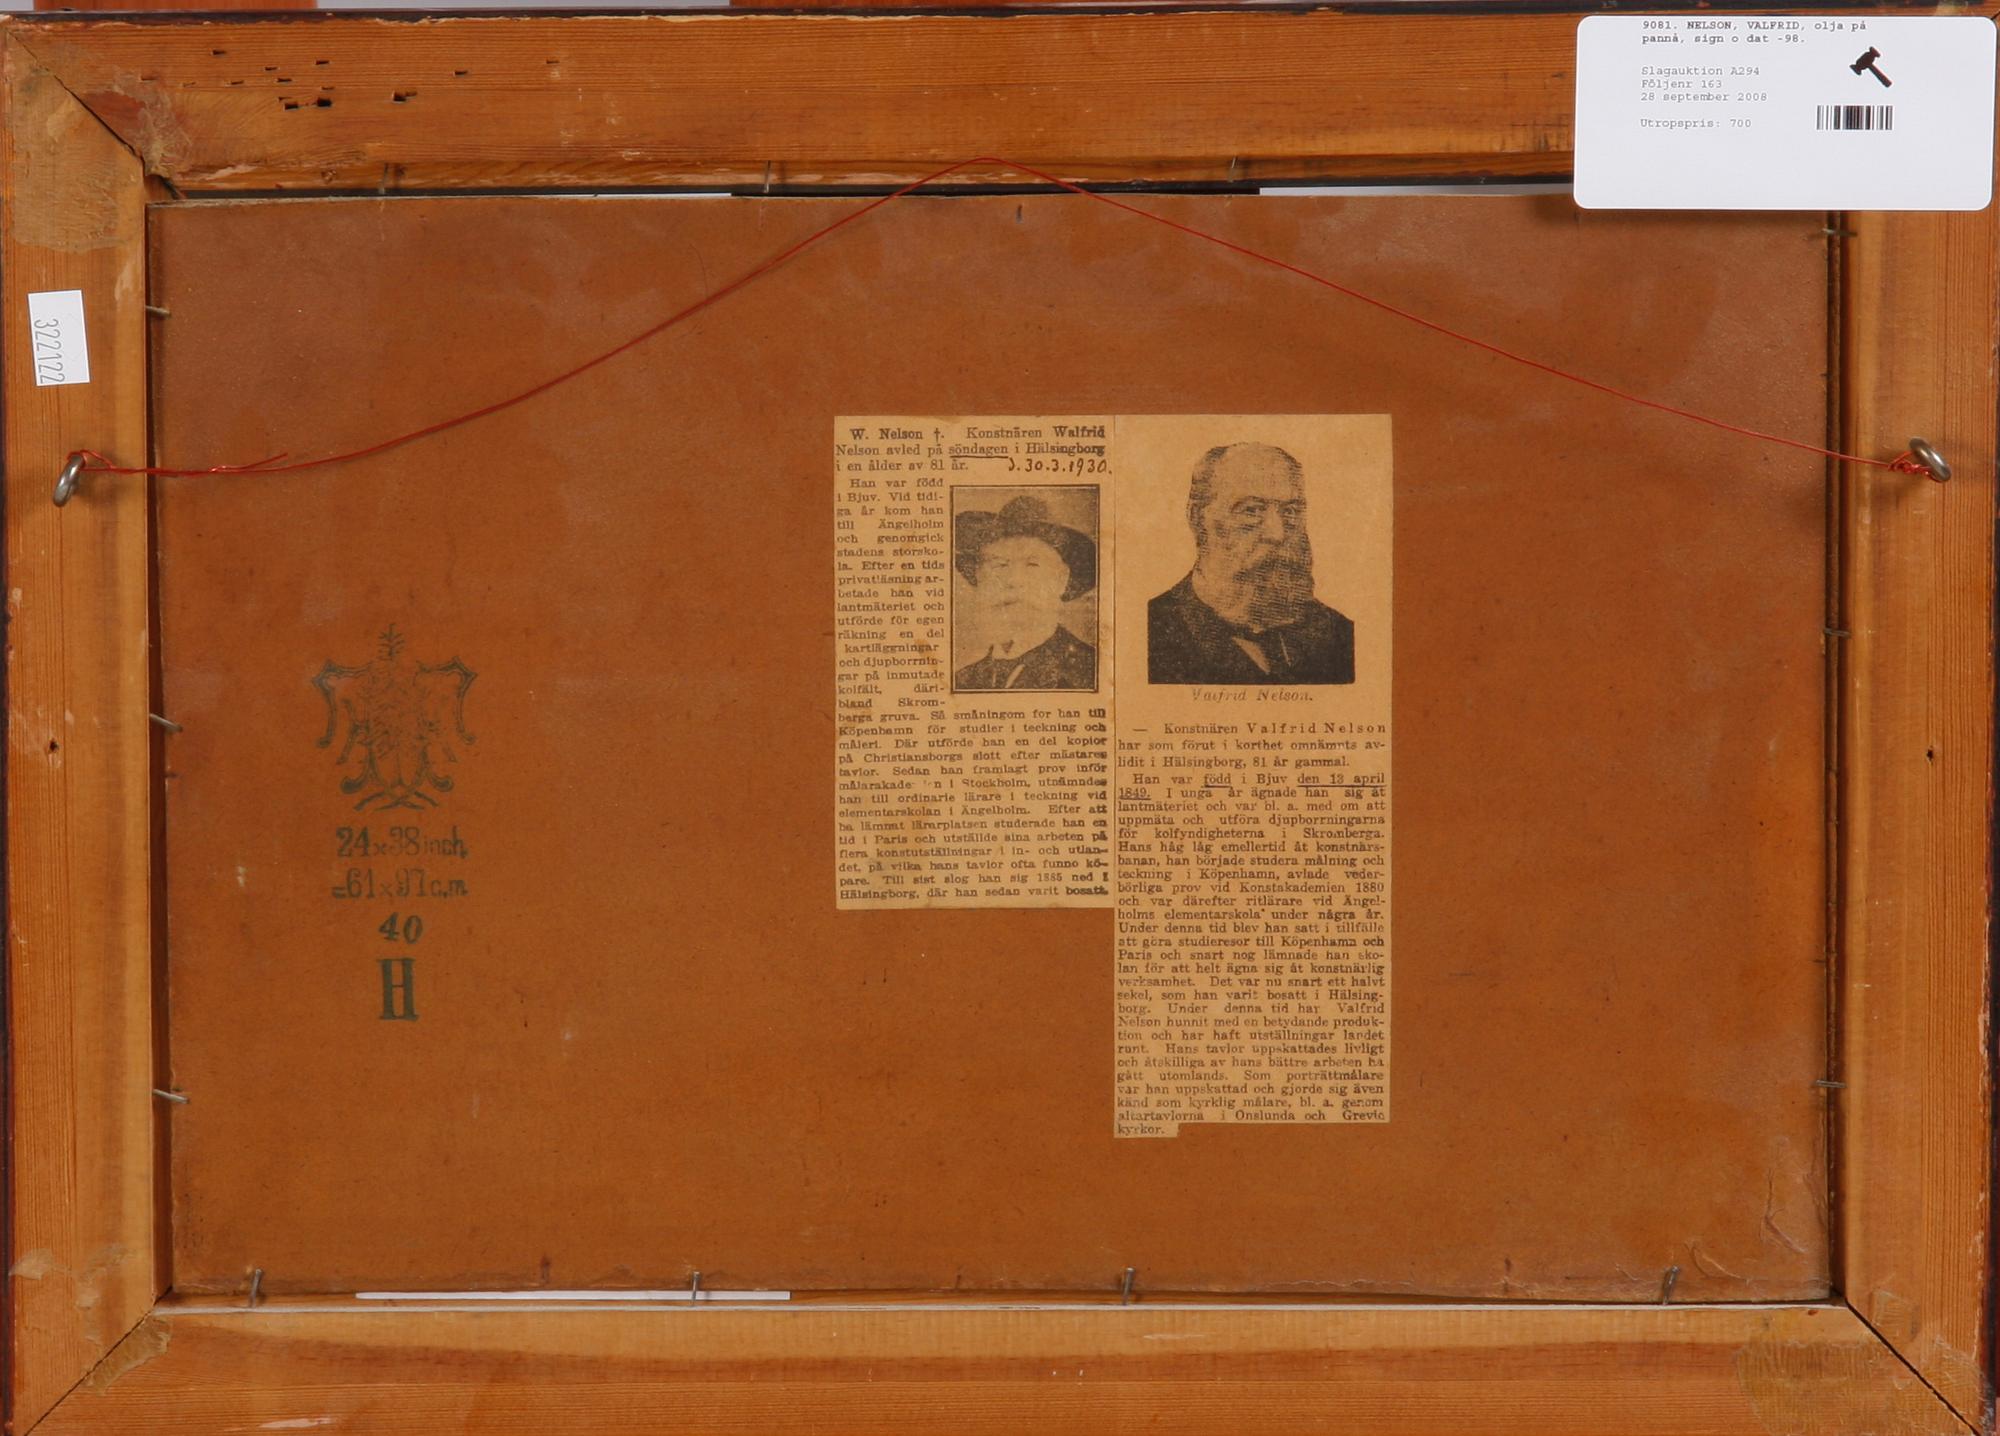 9081. NELSON, VALFRID, olja på
pannå, sign o dat -98.
Slagauktion A294
Följenr 163
28 september 2008
Utropspris: 700
322122
W. Nelson †. Konstnären Walfrid
Nelson avled på söndagen i Hälsingborg
i en ålder av 81 år. 30.3.1930.
Han var född
i Bjuv. Vid tidi-
ga år kom han
till Ängelholm
och genomgick
stadens storsko-
la. Efter en tids
privatläsning ar-
betade han vid
lantmäteriet och
utförde för egen
räkning en del
kartläggningar
och djupborrnin-
gar på inmutade
kolfält, däri-
bland Skrom-
berga gruva. Så småningom for han till
Köpenhamn för studier i teckning och
måleri. Där utförde han en del kopior
på Christiansborgs slott efter mästares
tavlor. Sedan han framlagt prov inför
målarakade- n i Stockholm, utnämndes
han till ordinarie lärare i teckning vid
elementarskolan i Ängelholm. Efter att
ha lämnat lärarplatsen studerade han en
tid i Paris och utställde sina arbeten på
flera konstutställningar i in- och utlan-
det, på vilka hans tavlor ofta funno kö-
pare. Till sist slog han sig 1885 ned i
Hälsingborg, där han sedan varit bosatt.
Valfrid Nelson.
— Konstnären Valfrid Nelson
har som förut i korthet omnämnts av-
lidit i Hälsingborg, 81 år gammal.
Han var född i Bjuv den 13 april
1849. I unga år ägnade han sig åt
lantmäteriet och var bl. a. med om att
uppmäta och utföra djupborrningarna
för kolfyndigheterna i Skromberga.
Hans håg låg emellertid åt konstnärs-
banan, han började studera målning och
teckning i Köpenhamn, avlade veder-
börliga prov vid Konstakademien 1880
och var därefter ritlärare vid Ängel-
holms elementarskola under några år.
Under denna tid blev han satt i tillfälle
att göra studieresor till Köpenhamn och
Paris och snart nog lämnade han sko-
lan för att helt ägna sig åt konstnärlig
verksamhet. Det var nu snart ett halvt
sekel, som han varit bosatt i Hälsing-
borg. Under denna tid har Valfrid
Nelson hunnit med en betydande produk-
tion och har haft utställningar landet
runt. Hans tavlor uppskattades livligt
och åtskilliga av hans bättre arbeten ha
gått utomlands. Som porträttmålare
var han uppskattad och gjorde sig även
känd som kyrklig målare, bl. a. genom
altartavlorna i Onslunda och Grevie
kyrkor.
24x38 inch
=61x97 c.m
40
H